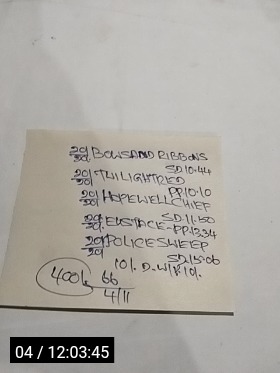 20/20 BOWSANDRIBBONS
SD.10.44
20/20 TWILIGHTRED
PP.10.10
20/20 HOPEWELLCHIEF
SD.11.50
20/20 EUSTACE-PP.13.34
20/20 POLICESWEEP
SD.15.06
400/.
66
4/11
04 / 12:03:45